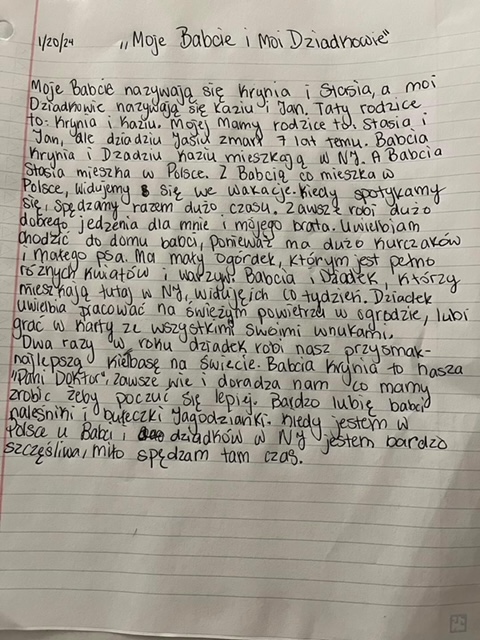 1/20/24 „Moje Babcie i Moi Dziadkowie"
Moje Babcie nazywają się Krynia i Stasia, a moi
Dziadkowie nazywają się Kaziu i Jan. Taty rodzice
to: Krynia i Kaziu. Mojej Mamy rodzice to: Stasia i
Jan, ale dziadziu Jasiu zmarł 7 lat temu. Babcia
Krynia i Dzadziu Kaziu mieszkają w NJ. A Babcia
Stasia mieszka w Polsce. Z Babcią co mieszka w
Polsce, widujemy się we wakacje. Kiedy spotykamy
się, spędzamy razem dużo czasu. Zawsze robi dużo
dobrego jedzenia dla mnie i mojego brata. Uwielbiam
chodzić do domu babci, ponieważ ma dużo kurczaków
i małego psa. Ma mały Ogórdek, którym jest pełno
różnych kwiatów i warzyw. Babcia i Dziadek, którzy
mieszkają tutaj w NJ, widuję ich co tydzień. Dziadek
uwielbia pracować na świeżym powietrzu w ogrodzie, lubi
grać w karty ze wszystkimi swoimi wnukami.
Dwa razy w roku dziadek robi nasz przysmak-
najlepszą kiełbasę na świecie. Babcia Krynia to nasza
"Pani Doktor", zawsze wie i doradza nam co mamy
zrobić żeby poczuć się lepiej. Bardzo lubię babci
naleśniki i bułeczki Jagodzianki. Kiedy jestem w
Polsce u Babci i dziadków w NJ jestem bardzo
szczęśliwa, miło spędzam tam czas.